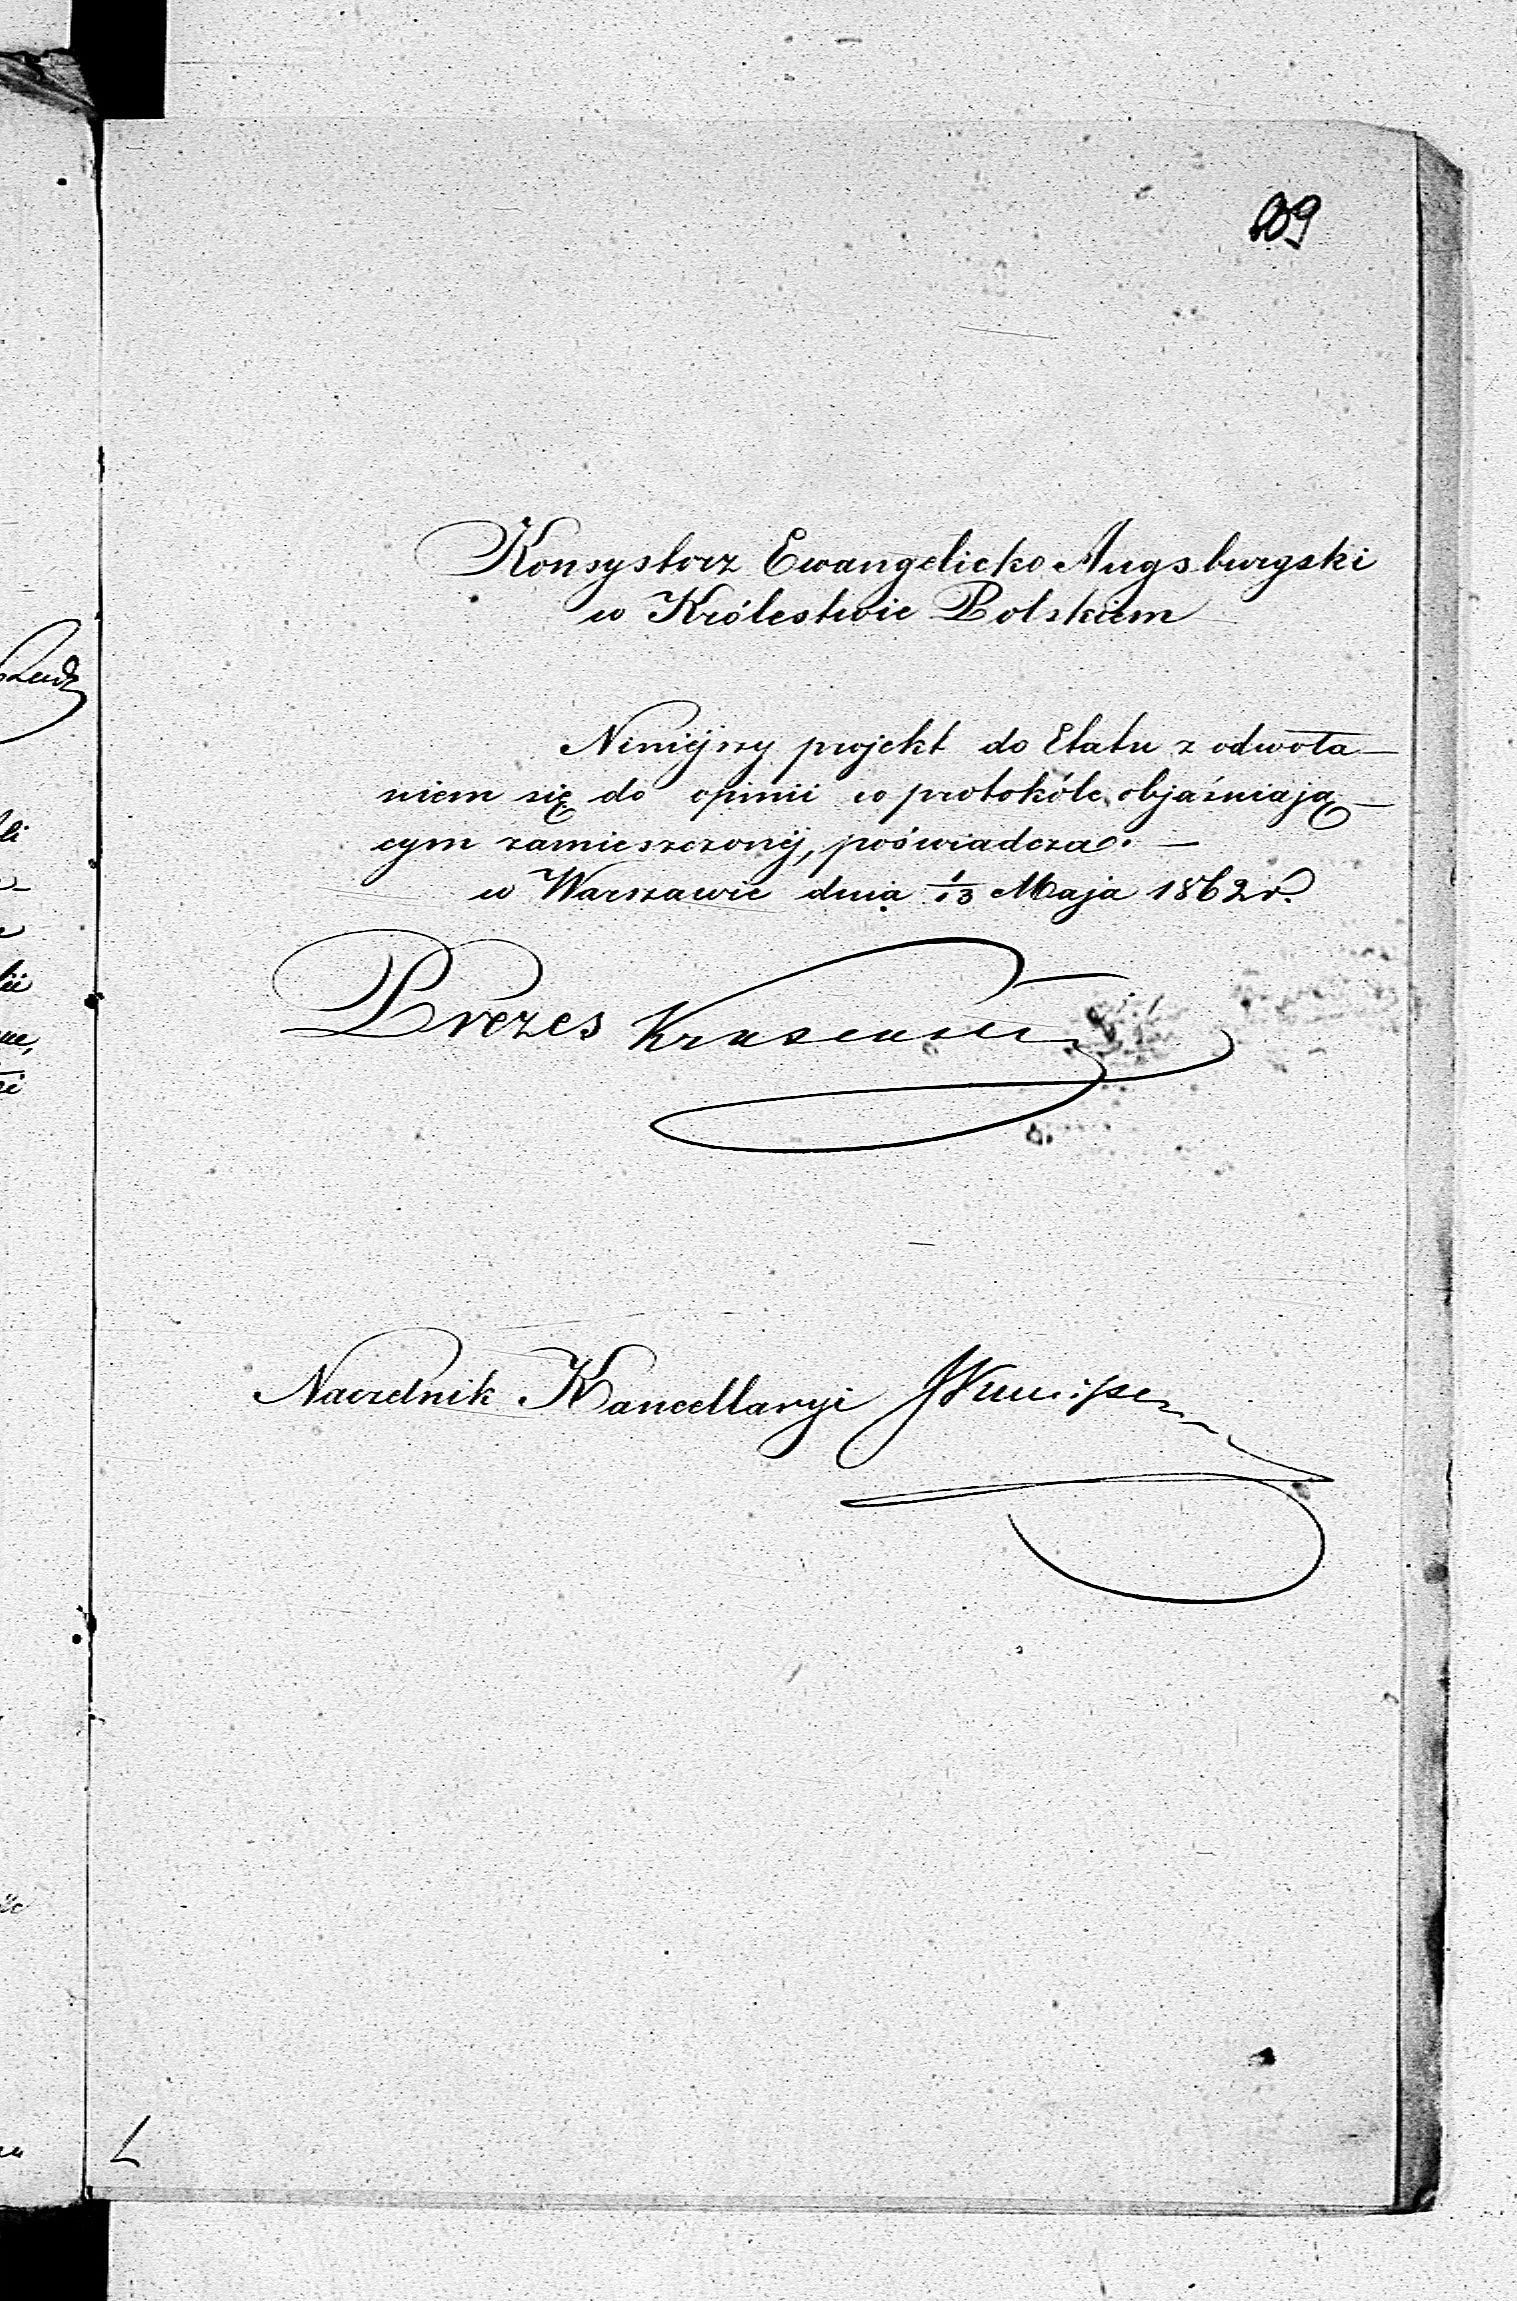 209
Konsystorz Ewangelicko Augsburgski
w Królestwie Polskiem
Niniéjszy projekt do Etatu z odwoła-
niem się do opinii w protokóle objaśniają-
cym zamieszczonéj, poświadcza. —
w Warszawie dnia 1/13 Maja 1862 r.
Prezes
Naczelnik Kancellaryi